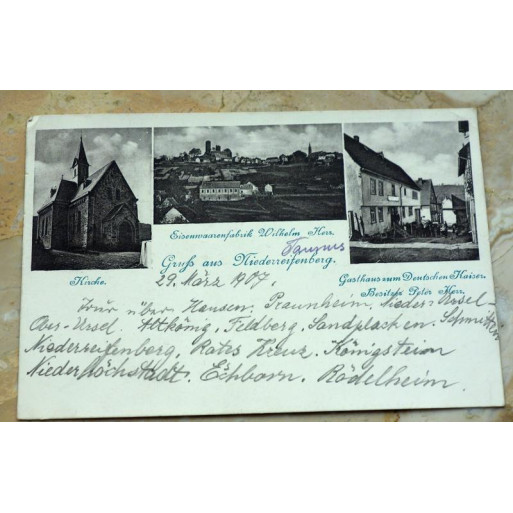 Eisenwaarenfabrik Wilhelm Herr.
Taunus
Gruß aus Niederreifenberg.
Kirche.
Gasthaus zum Deutschen Kaiser.
Besitzer Peter Herr.
29. März 1907.
Tour über Hausen, Praunheim, Nieder-Ursel-
Ober-Ursel. Altkönig, Feldberg, Sandplacken. Schmitten
Niederreifenberg, Rotes Kreuz. Königstein
Niederhöchstadt. Echborn. Rödelheim.